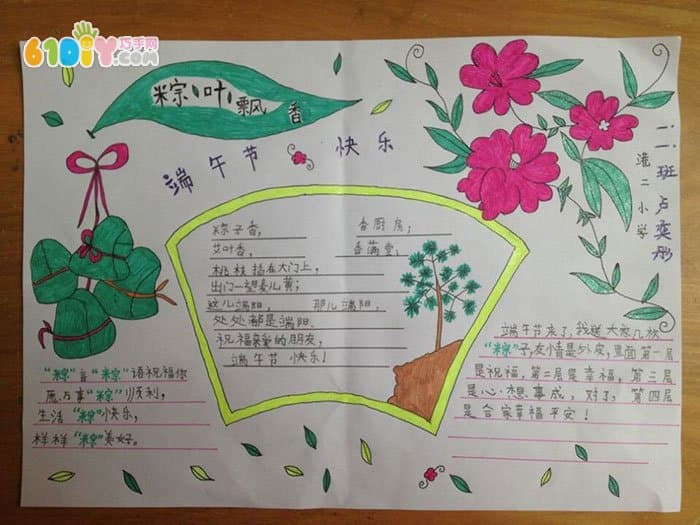 610DIY巧手网
.com
粽叶飘香
端午节 快乐
二、二班 卢奕彤
港二小学
粽子香， 香厨房；
艾叶香， 香满堂；
桃枝插在大门上，
出门一望麦儿黄；
这儿端阳， 那儿端阳，
处处都是端阳。
祝福亲爱的朋友，
端午节 快乐！
"粽"言"粽"语祝福你
愿万事"粽"顺利，
生活"粽"快乐，
样样"粽"美好。
端午节来了，我送大家几枚
"粽"子，友情是外皮，里面第一层
是祝福，第二层是幸福，第三层
是心·想事成，对了，第四层
是合家幸福平安！